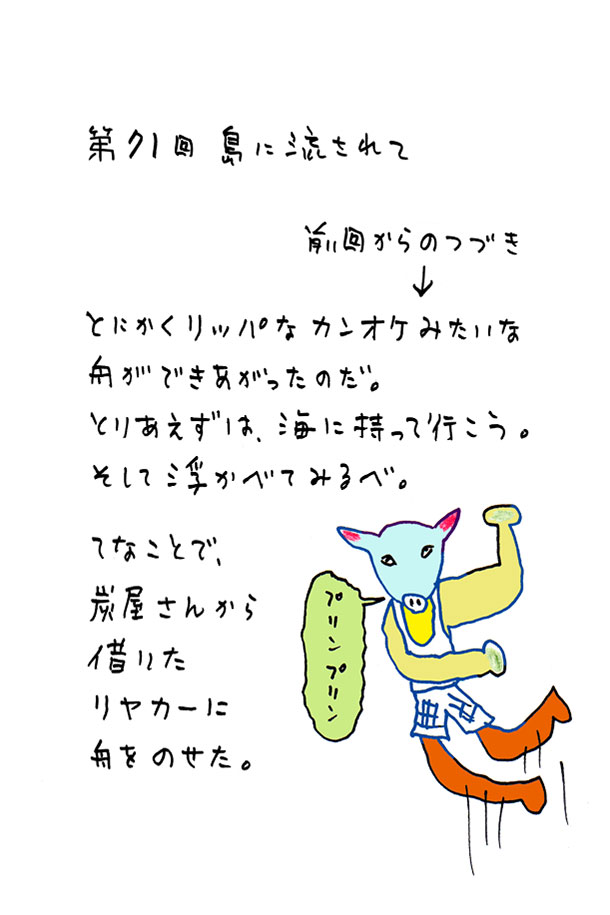 第71回 島に流されて
前回からのつづき
↓
とにかくリッパなカンオケみたいな
舟ができあがったのだ。
とりあえずは、海に持って行こう。
そして浮かべてみるべ。
てなことで、
炭屋さんから
借りた
リヤカーに
舟をのせた。
プリンプリン